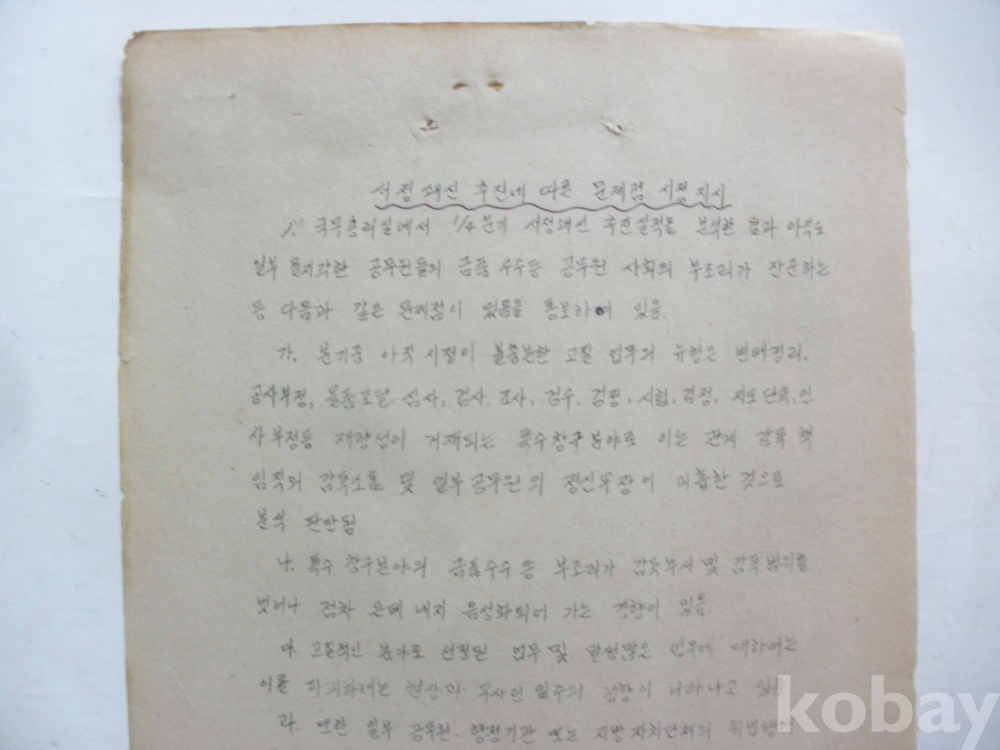 서정쇄신 추진에 따른 문제점 시정 지시
1. 국무총리실에서 1/4분기 서정쇄신 추진실적을 분석한 결과 아직도
일부 몰지각한 공무원들의 금품수수등 공무원 사회의 부조리가 잔존하는
등 다음과 같은 문제점이 있음을 통보하여 있음.
가. 분기중 아직 시정이 불충분한 고질 업무의 유형은 변태경리,
공사부정, 물품조달, 심사, 검사, 조사, 검수, 검정, 시험, 지도단속, 인
사부정등 재량성이 개재되는 특수창구분야로 이는 관계 감독 책
임직의 감독소홀 및 일부공무원의 정신무장이 미흡한 것으로
분석 판단됨
나. 특수 창구분야의 금품수수 등 부조리가 감독부서 및 감독 범위를
벗어나 점차 은폐 내지 음성화되어 가는 경향이 있음.
다. 고질적인 분야로 선정된 업무 및 말썽많은 업무에 대하여는
이를 하려는 현상의 무사인일주의 경향이 나타나고 있음
라. 또한 일부 공무원. 행정기관 또는 지방자치단체의
kobay